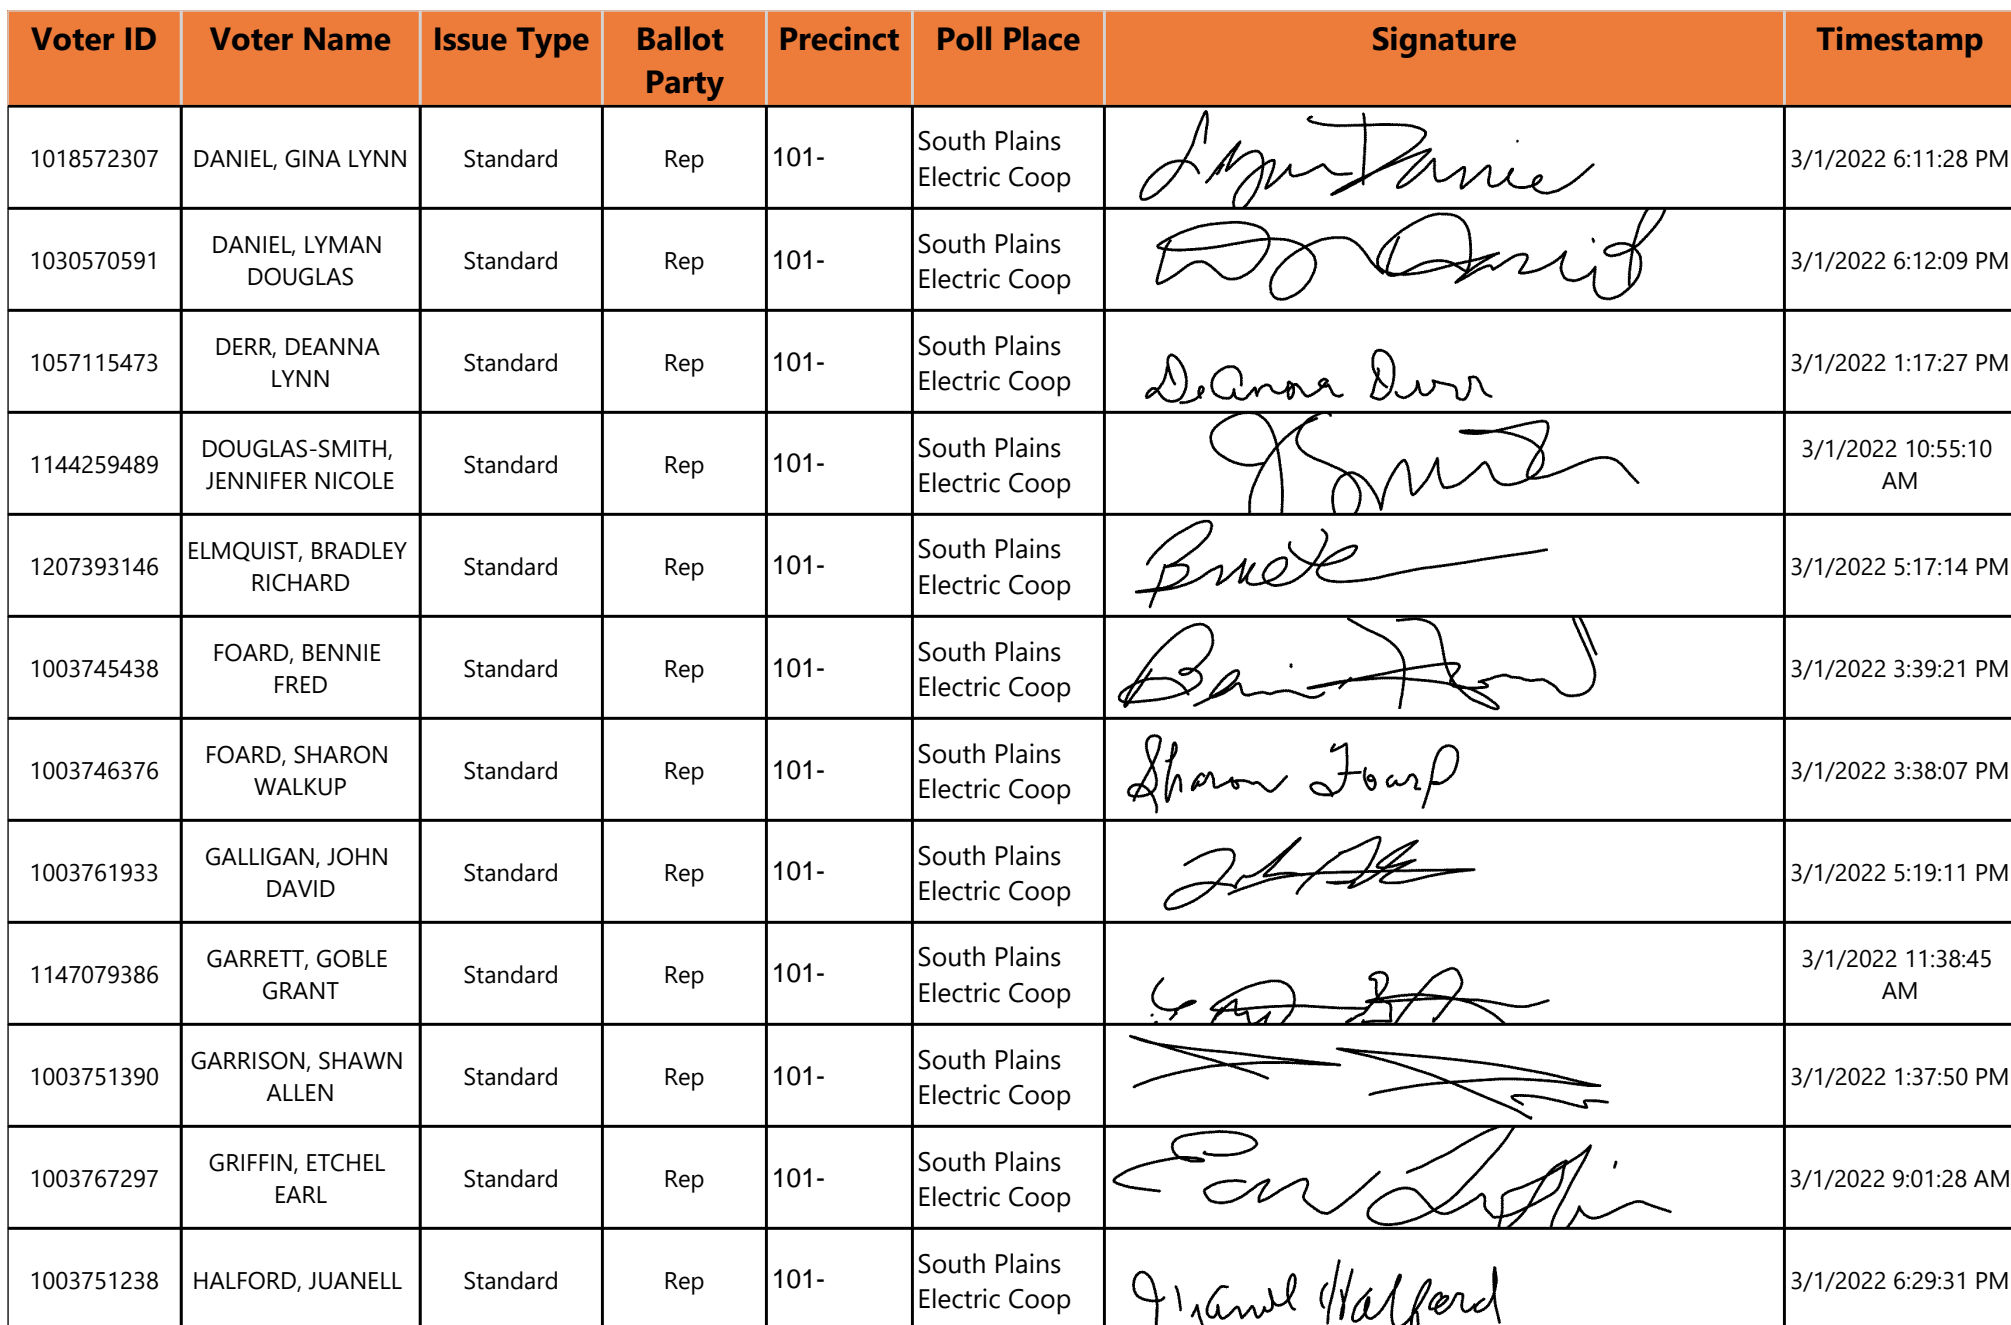 Voter ID Voter Name Issue Type Ballot Party Precinct Poll Place Signature Timestamp
1018572307 DANIEL, GINA LYNN Standard Rep 101- South Plains Electric Coop Lynn Daniel 3/1/2022 6:11:28 PM
1030570591 DANIEL, LYMAN DOUGLAS Standard Rep 101- South Plains Electric Coop 3/1/2022 6:12:09 PM
1057115473 DERR, DEANNA LYNN Standard Rep 101- South Plains Electric Coop DeAnna Derr 3/1/2022 1:17:27 PM
1144259489 DOUGLAS-SMITH, JENNIFER NICOLE Standard Rep 101- South Plains Electric Coop 3/1/2022 10:55:10 AM
1207393146 ELMQUIST, BRADLEY RICHARD Standard Rep 101- South Plains Electric Coop 3/1/2022 5:17:14 PM
1003745438 FOARD, BENNIE FRED Standard Rep 101- South Plains Electric Coop 3/1/2022 3:39:21 PM
1003746376 FOARD, SHARON WALKUP Standard Rep 101- South Plains Electric Coop Sharon Foard 3/1/2022 3:38:07 PM
1003761933 GALLIGAN, JOHN DAVID Standard Rep 101- South Plains Electric Coop 3/1/2022 5:19:11 PM
1147079386 GARRETT, GOBLE GRANT Standard Rep 101- South Plains Electric Coop 3/1/2022 11:38:45 AM
1003751390 GARRISON, SHAWN ALLEN Standard Rep 101- South Plains Electric Coop 3/1/2022 1:37:50 PM
1003767297 GRIFFIN, ETCHEL EARL Standard Rep 101- South Plains Electric Coop Earl Griffin 3/1/2022 9:01:28 AM
1003751238 HALFORD, JUANELL Standard Rep 101- South Plains Electric Coop Juanell Halford 3/1/2022 6:29:31 PM